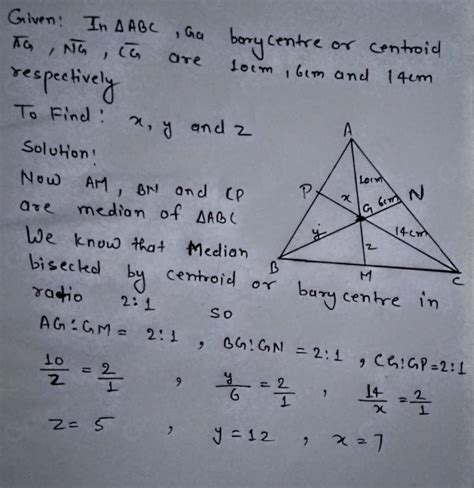 Given: In △ABC, Ga barycentre or centroid
AG, NG, CG are 10cm, 6cm and 14cm
respectively
To Find: x, y and z
Solution:
Now AM, BN and CP
are median of △ABC
We know that Median
bisected by centroid or barycentre in
radio 2:1 so
AG:GM = 2:1, BG:GN = 2:1, CG:GP=2:1
10/z = 2/1, y/6 = 2/1, 14/x = 2/1
z = 5, y = 12, x = 7
A
P
x
10cm
N
G
6cm
y
z
14cm
B
M
C